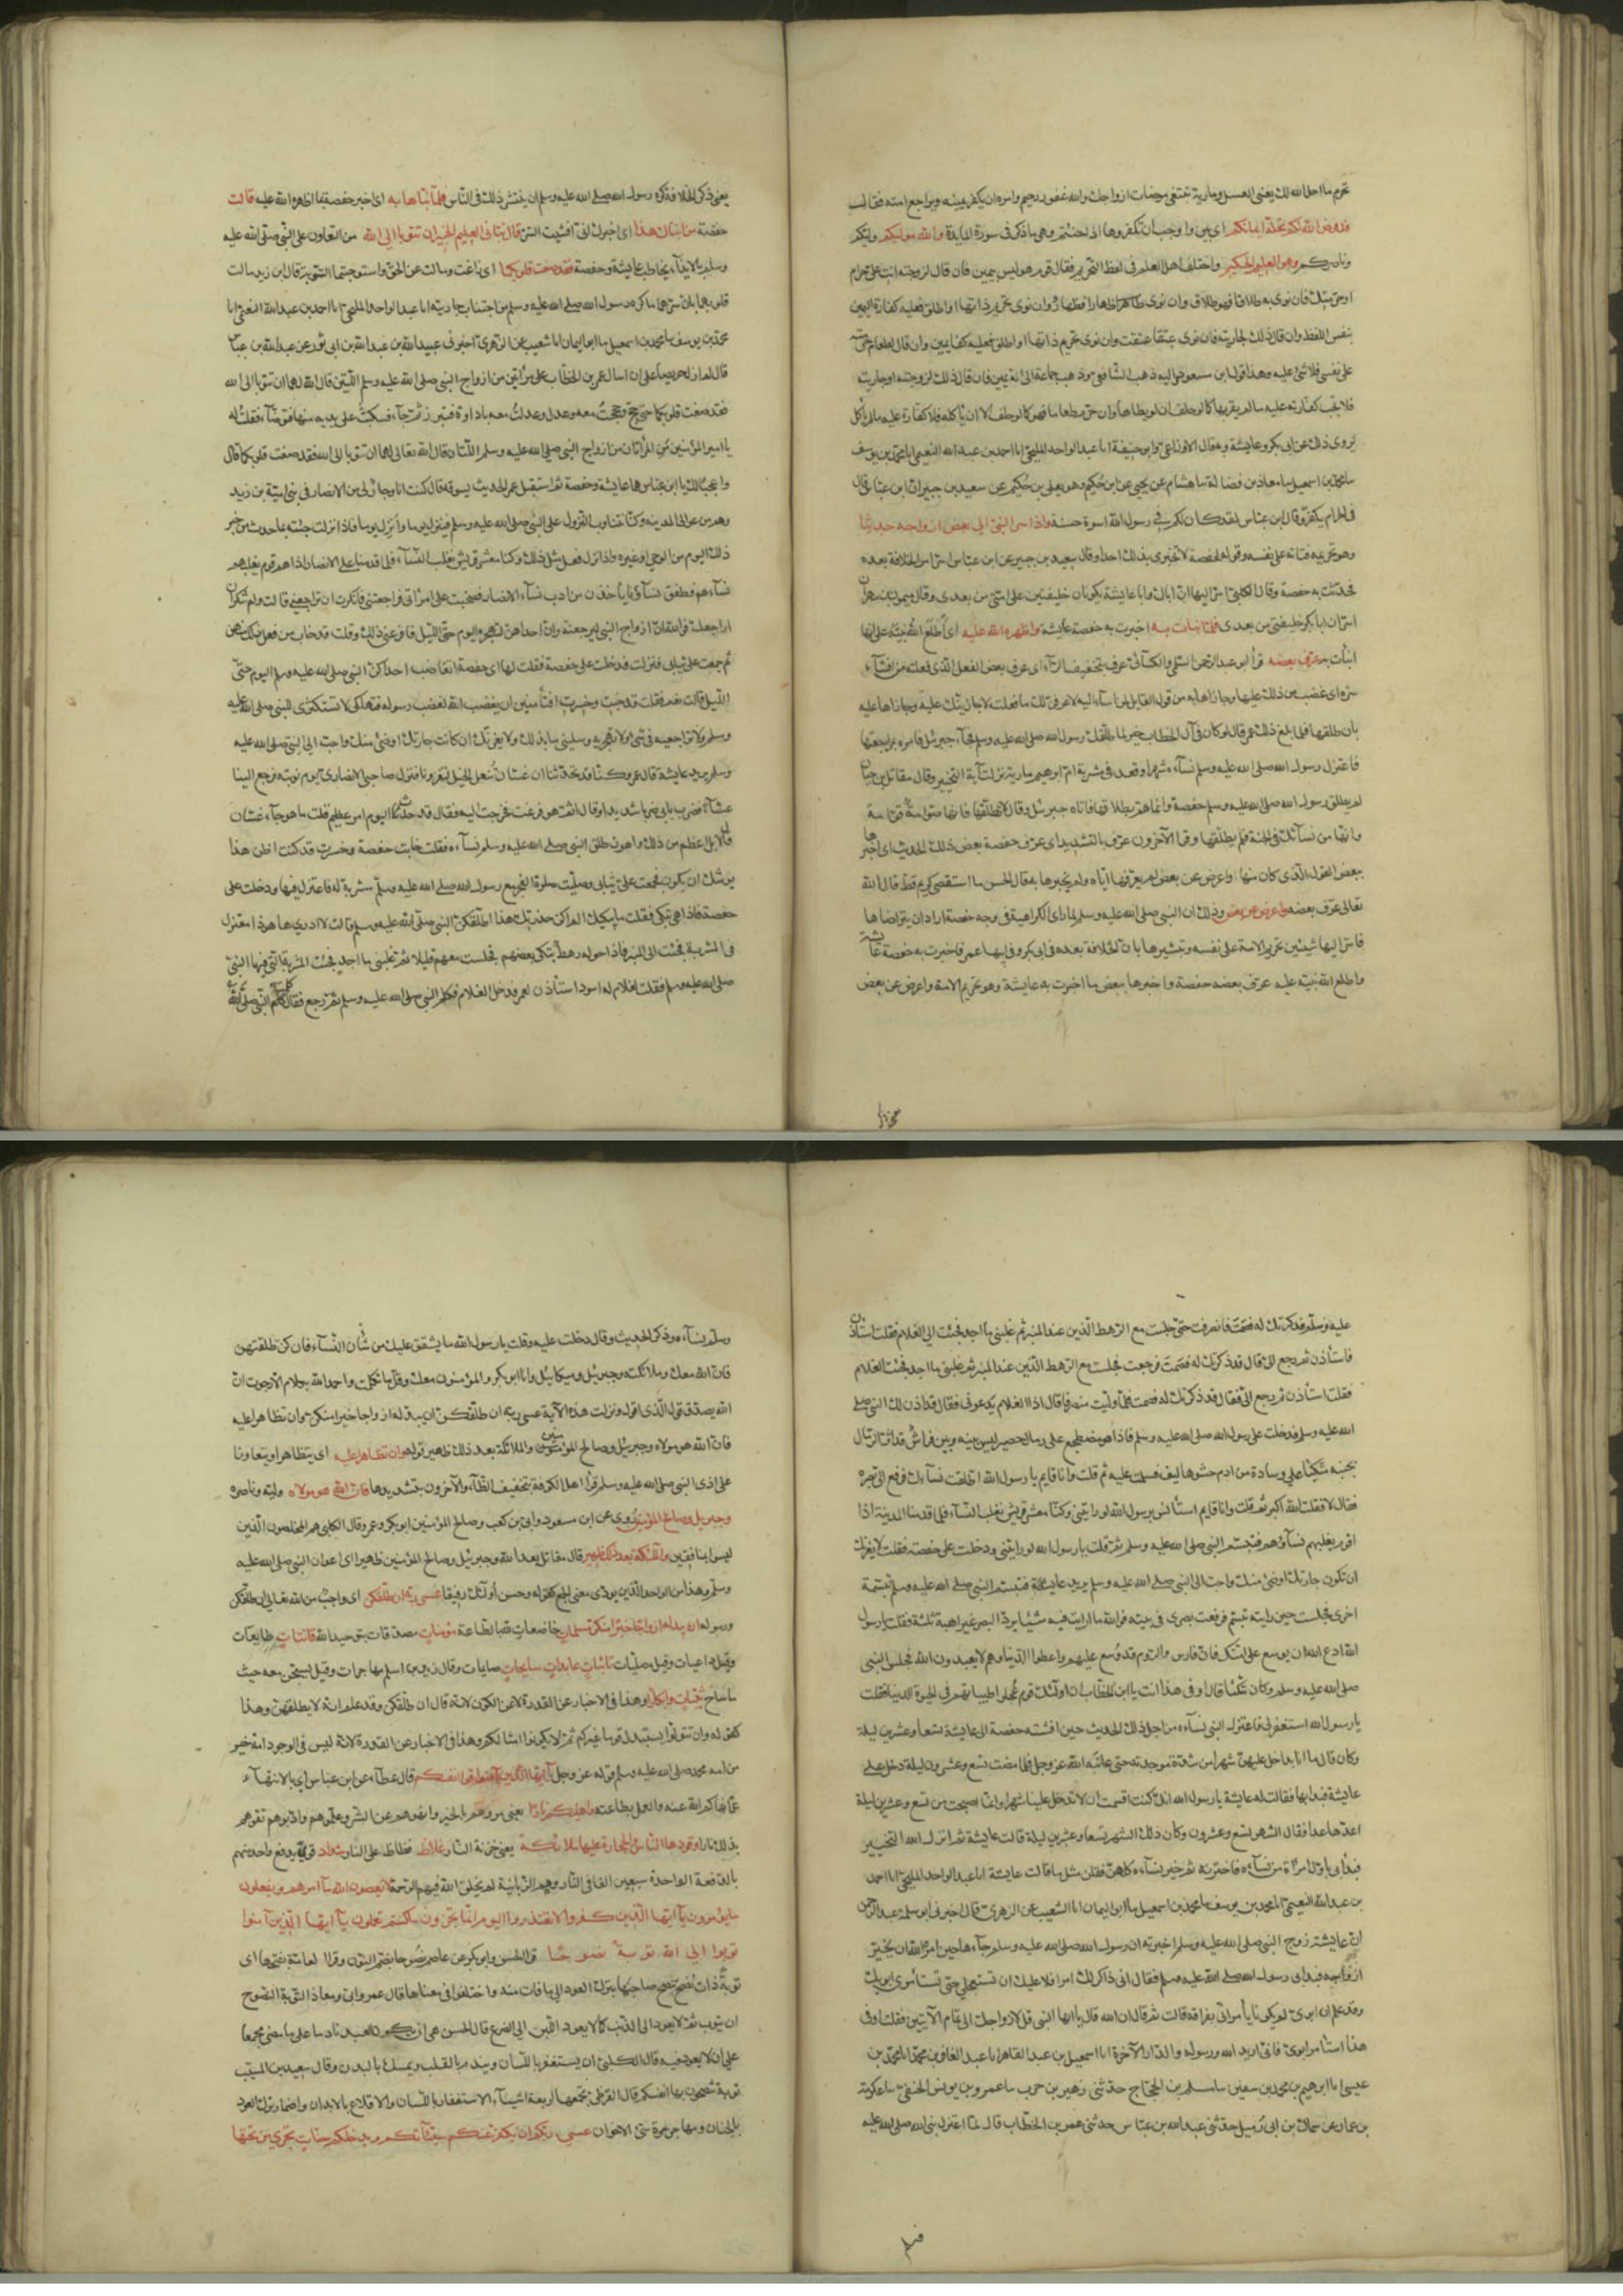 تحرم ما احل الله لك يعنى العسل ومارية تبتغى مرضات ازواجك والله غفور رحيم وامره ان يكفر يمينه ويراجع امته فقال
قد فرض الله لكم تحلة ايمانكم اى بين واوجب ان تكفروها اذا حنثتم وهى ما ذكر فى سورة المايدة والله موليكم وليكم
وناصركم وهو العليم الحكيم واختلف اهل العلم فى لفظ التحريم فقال قوم هو ليس بيمين فان قال لزوجته انت على حرام
او حرمتك فان نوى به طلاقا فهو طلاق وان نوى ظهارا فظهار وان نوى تحريم ذاتها او اطلق فعليه كفارة اليمين
بنفس اللفظ وان قال ذلك لجاريته فان نوى عتقا عتقت وان نوى تحريم ذاتها او اطلق فعليه كفارة يمين وان قال لطعام حرمته
على نفسى فلا شئ عليه وهذا قول ابن مسعود واليه ذهب الشافعى وذهب جماعة الى انه يمين فان قال ذلك لزوجته او جاريته
فلا يجب كفارته عليه ما لم يقربها كما لو حلف ان لا يطاها وان حرم طعاما فهو كما لو حلف ان لا ياكله فلا كفارة عليه ما لم ياكل
يروى ذلك عن ابى بكر وعايشة وبه قال الاوزاعى وابو حنيفة انا عبد الواحد المليحى انا احمد بن عبد الله النعيمى انا محمد بن يوسف
نا محمد بن اسمعيل نا معاذ بن فضالة نا هشام عن يحيى عن ابن حكيم وهو يعلى بن حكيم عن سعيد بن جبير ان ابن عباس قال
فى الحرام يكفر وقال ابن عباس لقد كان لكم فى رسول الله اسوة حسنة واذ اسر النبى الى بعض ازواجه حديثا
وهو تحريمه فتاته على نفسه وقوله لحفصة لا تخبرى بذلك احدا وقال سعيد بن جبير عن ابن عباس اسر امر الخلافة بعده
فحدثت به حفصة وقال الكلبى اسر اليها ان اباك وابا عايشة يكونان خليفتين على امتى من بعدى وقال ميمون بن مهران
اسر ان ابا بكر خليفتى من بعدى فلما نبات به اخبرت به حفصة عايشة واظهره الله عليه اى اطلع الله نبيه على انها
انبات به عرف بعضه قرا ابو عبد الرحمن السلمى والكسائى عرف بتخفيف الراء اى عرف بعض الفعل الذى فعلته من افشاء
سره اى غضب من ذلك عليها وجازاها به من قول القايل لمن اساء اليه لاعرفن لك ما فعلت اى لاجازينك عليه وجازاها عليه
بان طلقها فلما بلغ ذلك عمر قال لو كان فى آل الخطاب خير لما طلقك رسول الله صلى الله عليه وسلم فجاء جبرئيل فامره بمراجعتها
فاعتزل رسول الله صلى الله عليه وسلم نساءه شهرا وقعد فى مشربة ام ابرهيم مارية نزلت آية التخيير وقال مقاتل بن حيان
لم يطلق رسول الله صلى الله عليه وسلم حفصة وانما هم بطلاقها فاتاه جبرئيل وقال لا تطلقها فانها صوامة قوامة
وانها من نسآئك فى الجنة فلم يطلقها وقرا الآخرون عرف بالتشديد اى عرف حفصة بعض ذلك الحديث اى اخبرها
ببعض القول الذى كان منها واعرض عن بعض لم يعرفها اياه ولم يخبرها به قال الحسن ما استقصى كريم قط قال الله
تعالى عرف بعضه واعرض عن بعض وذلك ان النبى صلى الله عليه وسلم لما راى الكراهية فى وجه حفصة اراد ان يتراضاها
فاسر اليها شيئين تحريم الامة على نفسه وتبشيرها بان الخلافة بعده فى ابى بكر وفى ابيها عمر فاخبرت به حفصة عايشة
واطلع الله نبيه عليه عرف بعضه حفصة واخبرها ببعض ما اخبرت به عايشة وهو تحريم الامة واعرض عن بعض
يعنى ذكر الخلافة كره رسول الله صلى الله عليه وسلم ان ينتشر ذلك فى الناس فلما نباها به اى اخبر حفصة بما اظهره الله عليه قالت
حفصة من انباك هذا اى اخبرك انى افشيت السر قال نبانى العليم الخبير ان تتوبا الى الله من التعاون على النبى صلى الله عليه
وسلم بالايذاء يخاطب عايشة وحفصة فقد صغت قلوبكما اى زاغت ومالت عن الحق واستوجبتما التوبة قال ابن زيد مالت
قلوبهما بان سرهما ما كره رسول الله صلى الله عليه وسلم من اجتناب جاريته انا عبد الواحد المليحى انا احمد بن عبد الله النعيمى انا
محمد بن يوسف نا محمد بن اسمعيل نا ابو اليمان انا شعيب عن الزهرى اخبرنى عبيد الله بن عبد الله بن ابى ثور عن عبد الله بن عباس
قال لم ازل حريصا على ان اسال عمر بن الخطاب عن المراتين من ازواج النبى صلى الله عليه وسلم اللتين قال الله لهما ان تتوبا الى الله
فقد صغت قلوبكما حتى حج وحججت معه وعدل وعدلت معه باداوة فتبرز ثم جاء فسكبت على يديه منها فتوضأ فقلت له
يا امير المؤمنين من المراتان من ازواج النبى صلى الله عليه وسلم اللتان قال الله تعالى لهما ان تتوبا الى الله فقد صغت قلوبكما قال
واعجبا لك يا ابن عباس هما عايشة وحفصة ثم استقبل عمر الحديث يسوقه قال كنت انا وجار لى من الانصار فى بنى امية بن زيد
وهم من عوالى المدينة وكنا نتناوب النزول على النبى صلى الله عليه وسلم فينزل يوما وانزل يوما فاذا نزلت جئته بما حدث من خبر
ذلك اليوم من الوحى او غيره واذا نزل فعل مثل ذلك وكنا معشر قريش نغلب النساء فلما قدمنا على الانصار اذا هم قوم تغلبهم
نساءهم فطفق نساؤنا ياخذن من ادب نساء الانصار فصخبت على امراتى فراجعتنى فانكرت ان تراجعنى قالت ولم تنكر ان
اراجعك فوالله ان ازواج النبى ليراجعنه وان احداهن لتهجره اليوم حتى الليل فافزعنى ذلك وقلت قد خاب من فعل ذلك منهن
ثم جمعت على ثيابى فنزلت فدخلت على حفصة فقلت لها اى حفصة اتغاضب احداكن النبى صلى الله عليه وسلم اليوم حتى
الليل قالت نعم فقلت قد خبت وخسرت افتامنين ان يغضب الله لغضب رسوله فتهلكى لا تستكثرى للنبى صلى الله عليه
وسلم ولا تراجعيه فى شئ ولا تهجريه وسلينى ما بدا لك ولا يغرنك ان كانت جارتك اوضئ منك واحب الى النبى صلى الله عليه
وسلم يريد عايشة قال عمر وكنا قد تحدثنا ان غسان تنعل الخيل لتغزونا فنزل صاحبى الانصارى يوم نوبته فرجع الينا
عشاء فضرب بابى ضربا شديدا وقال اثم هو ففزعت فخرجت اليه فقال قد حدث اليوم امر عظيم قلت ما هو جاء غسان
قال لا بل اعظم من ذلك واهول طلق النبى صلى الله عليه وسلم نساءه فقلت خابت حفصة وخسرت قد كنت اظن هذا
يوشك ان يكون فجمعت على ثيابى وصليت صلوة الفجر مع رسول الله صلى الله عليه وسلم مشربة له فاعتزل فيها ودخلت على
حفصة فاذا هى تبكى فقلت ما يبكيك الم اكن حذرتك هذا اطلقكن النبى صلى الله عليه وسلم قالت لا ادرى ها هو ذا معتزل
فى المشربة فجئت الى المنبر فاذا حوله رهط يبكى بعضهم فجلست معهم قليلا ثم غلبنى ما اجد فجئت المشربة التى فيها النبى
صلى الله عليه وسلم فقلت لغلام له اسود استاذن لعمر فدخل الغلام فكلم النبى صلى الله عليه وسلم ثم رجع فقال كلمت النبى صلى الله
عليه وسلم وذكرتك له فصمت فانصرفت حتى جلست مع الرهط الذين عند المنبر ثم غلبنى ما اجد فجئت الى الغلام فقلت استاذن
فاستاذن ثم رجع الى قال قد ذكرتك له فصمت فرجعت فجلست مع الرهط الذين عند المنبر ثم غلبنى ما اجد فجئت الغلام
فقلت استاذن ثم رجع الى فقال قد ذكرتك له فصمت فلما وليت منصرفا قال اذا الغلام يدعونى فقال قد اذن لك النبى صلى
الله عليه وسلم فدخلت على رسول الله صلى الله عليه وسلم فاذا هو مضطجع على رمال حصير ليس بينه وبين فراش قد اثر الرمال
بجنبه متكئا على وسادة من ادم حشوها ليف فسلمت عليه ثم قلت وانا قايم يا رسول الله اطلقت نساءك فرفع الى بصره
فقال لا فقلت الله اكبر ثم قلت وانا قايم استانس يا رسول الله لو رايتنى وكنا معشر قريش نغلب النساء فلما قدمنا المدينة اذا
قوم يغلبهم نساؤهم فتبسم النبى صلى الله عليه وسلم ثم قلت يا رسول الله لو رايتنى ودخلت على حفصة فقلت لا يغرنك
ان تكون جارتك اوضئ منك واحب الى النبى صلى الله عليه وسلم يريد عايشة فتبسم النبى صلى الله عليه وسلم تبسمة
اخرى فجلست حين رايته تبسم فرفعت بصرى فى بيته فوالله ما رايت فيه شيئا يرد البصر غير اهبة ثلثة فقلت يا رسول
الله ادع الله ان يوسع على امتك فان فارس والروم قد وسع عليهم واعطوا الدنيا وهم لا يعبدون الله فجلس النبى
صلى الله عليه وسلم وكان متكئا قال او فى هذا انت يا ابن الخطاب ان اولئك قوم عجلوا طيباتهم فى الحيوة الدنيا فقلت
يا رسول الله استغفر لى فاعتزل النبى نساءه من اجل ذلك الحديث حين افشته حفصة الى عايشة تسعا وعشرين ليلة
وكان قال ما انا بداخل عليهن شهرا من شدة موجدته حتى عاتبه الله عز وجل فلما مضت تسع وعشرون ليلة دخل على
عايشة فبدا بها فقالت له عايشة يا رسول الله انك كنت اقسمت ان لا تدخل علينا شهرا وانما اصبحت من تسع وعشرين ليلة
اعدها عدا فقال الشهر تسع وعشرون وكان ذلك الشهر تسعا وعشرين ليلة قالت عايشة ثم انزل الله التخيير
فبدا بى اول امراة من نسائه فاخترته ثم خير نساءه كلهن فقلن مثل ما قالت عايشة انا عبد الواحد المليحى انا احمد
بن عبد الله النعيمى انا محمد بن يوسف نا محمد بن اسمعيل نا ابو اليمان انا شعيب عن الزهرى قال اخبرنى ابو سلمة بن عبد الرحمن
ان عايشة زوج النبى صلى الله عليه وسلم اخبرته ان رسول الله صلى الله عليه وسلم جاءها حين امره الله ان يخير
ازواجه فبدا بى رسول الله صلى الله عليه وسلم فقال انى ذاكر لك امرا فلا عليك ان تستعجلى حتى تستامرى ابويك
وقد علم ان ابوى لم يكونا يامرانى بفراقه قالت ثم قال ان الله قال يا ايها النبى قل لازواجك الى تمام الآيتين فقلت او فى
هذا استامر ابوى فانى اريد الله ورسوله والدار الآخرة انا اسمعيل بن عبد القاهر انا عبد الغافر بن محمد انا محمد بن
عيسى نا ابرهيم بن محمد بن سفين نا مسلم بن الحجاج حدثنى زهير بن حرب نا عمرو بن يونس الحنفى نا عكرمة
بن عمار عن سماك بن ابى زميل حدثنى عبد الله بن عباس حدثنى عمر بن الخطاب قال لما اعتزل نبى الله صلى الله عليه
وسلم نساءه وذكر الحديث وقال دخلت عليه وقلت يا رسول الله ما يشق عليك من شان النساء فان كنت طلقتهن
فان الله معك وملائكته وجبرئيل وميكائيل وانا وابو بكر والمؤمنون معك وقل ما تكلمت واحمد الله بكلام الا رجوت ان
الله يصدق قولى الذى اقول ونزلت هذه الآية عسى ربه ان طلقكن ان يبدله ازواجا خيرا منكن وان تظاهرا عليه
فان الله هو مولاه وجبرئيل وصالح المؤمنين والملائكة بعد ذلك ظهير قوله وان تظاهرا عليه اى يتظاهرا ويتعاونا
على اذى النبى صلى الله عليه وسلم قرا اهل الكوفة بتخفيف الظاء والآخرون بتشديدها فان الله هو مولاه وليه وناصره
وجبريل وصالح المؤمنين روى عن ابن مسعود وابى بن كعب وصالح المؤمنين ابو بكر وعمر وقال الكلبى هم المخلصون الذين
ليسوا بمنافقين والملئكة بعد ذلك ظهير قال مقاتل بعد الله وجبرئيل وصالح المؤمنين ظهير اى اعوان النبى صلى الله عليه
وسلم وهذا من الواحد الذى يودى معنى الجمع كقوله وحسن اولئك رفيقا عسى ربه ان طلقكن اى واجب من الله تعالى ان طلقكن
ورسوله ان يبدله ازواجا خيرا منكن مسلمات خاضعات لله بالطاعة مؤمنات مصدقات بتوحيد الله قانتات طايعات
وقيل داعيات وقيل مصليات تائبات عابدات سايحات صايمات وقال زيد بن اسلم مهاجرات وقيل يسحن معه حيث
ما ساح ثيبات وابكارا وهذا فى الاخبار عن القدرة لا عن الكون لانه قال ان طلقكن وقد علم انه لا يطلقهن وهذا
كقوله وان تتولوا يستبدل قوما غيركم ثم لا يكونوا امثالكم وهذا فى الاخبار عن القدرة لانه ليس فى الوجود امة خير
من امة محمد صلى الله عليه وسلم قوله عز وجل يا ايها الذين آمنوا قوا انفسكم قال عطاء عن ابن عباس اى بالانتهاء
عما نهاكم الله عنه والعمل بطاعته واهليكم نارا يعنى مروهم بالخير وانهوهم عن الشر وعلموهم وادبوهم تقوهم
بذلك نارا وقودها الناس والحجارة عليها ملائكة يعنى خزنة النار غلاظ فظاظ على النار شداد اقوياء يدفع واحد منهم
بالدفعة الواحدة سبعين الفا فى النار وهم الزبانية لم يخلق الله فيهم الرحمة لا يعصون الله ما امرهم ويفعلون
ما يؤمرون يآ ايها الذين كفروا لا تعتذروا اليوم انما تجزون ما كنتم تعملون يآ ايها الذين آمنوا
توبوا الى الله توبة نصوحا قرا الحسن وابو بكر عن عاصم نصوحا بضم النون وقرا العامة بفتحها اى
توبة ذات نصح تنصح صاحبها بترك العود الى ما فات منه واختلفوا فى معناها قال عمر وابى ومعاذ التوبة النصوح
ان يتوب ثم لا يعود الى الذنب كما لا يعود اللبن الى الضرع قال الحسن هى ان يكون العبد نادما على ما مضى مجمعا
على ان لا يعود فيه قال الكلبى ان يستغفر باللسان ويندم بالقلب ويمسك بالبدن وقال سعيد بن المسيب
توبة تنصحون بها انفسكم قال القرظى تجمعها اربعة اشياء الاستغفار باللسان والاقلاع بالابدان واضمار ترك العود
بالجنان ومهاجرة سئ الاخوان عسى ربكم ان يكفر عنكم سيئآتكم ويدخلكم جنات تجرى من تحتها